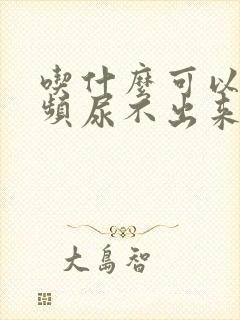 喫什麼可以
頻尿不出來
大島智